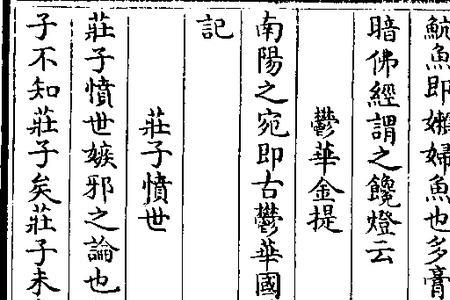 魧魚即嬾婦魚也多膏
暗佛經謂之饞燈云
鬱華金提
南陽之宛即古鬱華國
記
莊子憤世
莊子憤世嫉邪之論也
子不知莊子矣莊子未